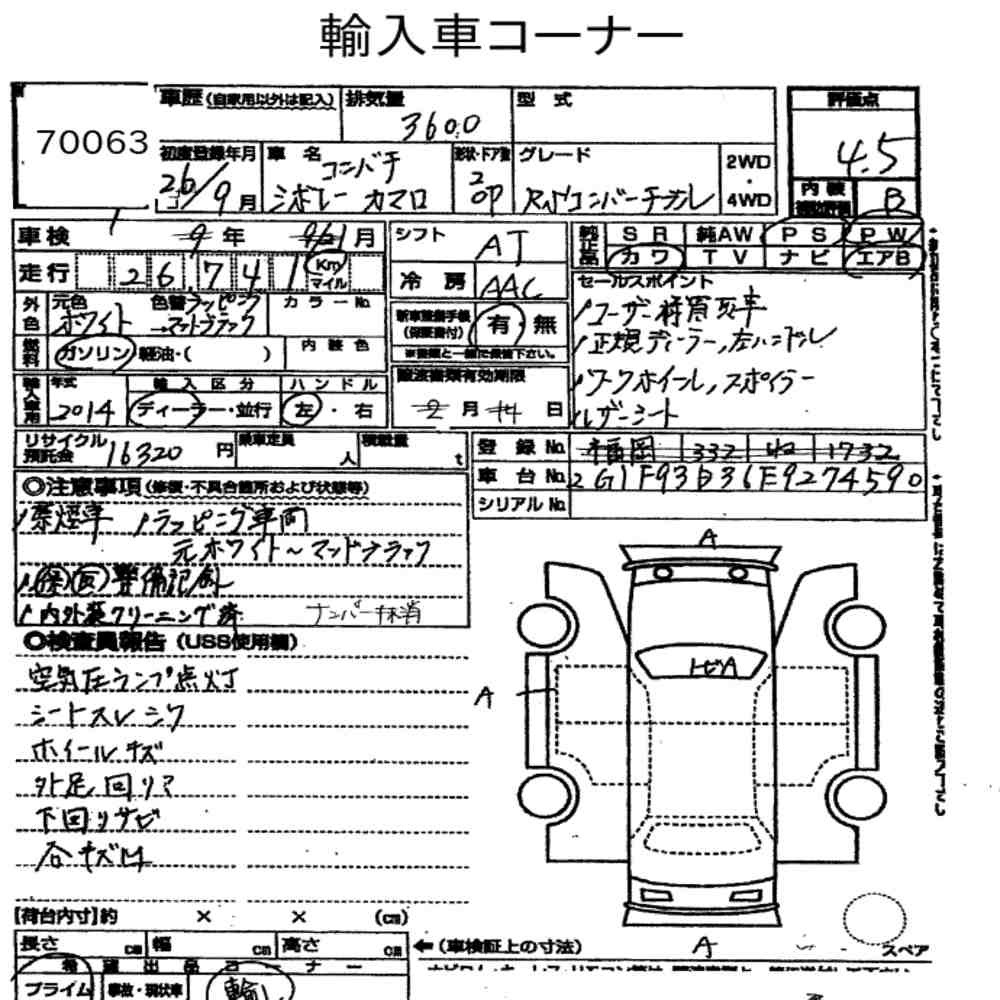 輸入車コーナー
70063
車歴 (自家用以外は記入) 排気量 3600 型式 評価点 4.5
初度登録年月 26/9月 車名 コンバチ シボレー カマロ 形状・ドア数 2 OP グレード RSコンバーチブル 2WD・4WD 内装 B
車検 9年 月 シフト AT 純正品 SR 純AW PS PW
走行 26741 Km マイル 冷房 AAC カワ TV ナビ エアB
外色 元色 ホワイト 色替 ラッピング →マットブラック カラーNo. 新車整備手帳 (保証書付) 有・無 セールスポイント
燃料 ガソリン・軽油・( ) 内装色 ※書類と一緒で保管下さい。
輸入車用 年式 2014 輸入区分 ディーラー・並行 ハンドル 左・右 譲渡書類有効期限 2月14日
/ユーザー様買取車
/正規ディーラー,左ハンドル
/ワークホイール,スポイラー
レザーシート
リサイクル預託金 16320円 乗車定員 人 積載量 t
登録No. 福岡 332 1732
車台No. 2G1F93D36E9274590
シリアルNo.
◎注意事項 (修復・不具合箇所および状態等)
/禁煙車 /ラッピング車両
元ホワイト〜マットブラック
/保 取 整備記録
/内外装クリーニング済 ナンバー抹消
◎検査員報告 (USS使用欄)
空気圧ランプ点灯
シートスレシワ
ホイールキズ
外足回リア
下回りサビ
各キズ凹
A
トビA
A
A
スペア
[荷台内寸]約 × × (cm)
長さ cm 幅 cm 高さ cm ←(車検証上の寸法)
希望出品コーナー
プライム 事故・現状車 輸入